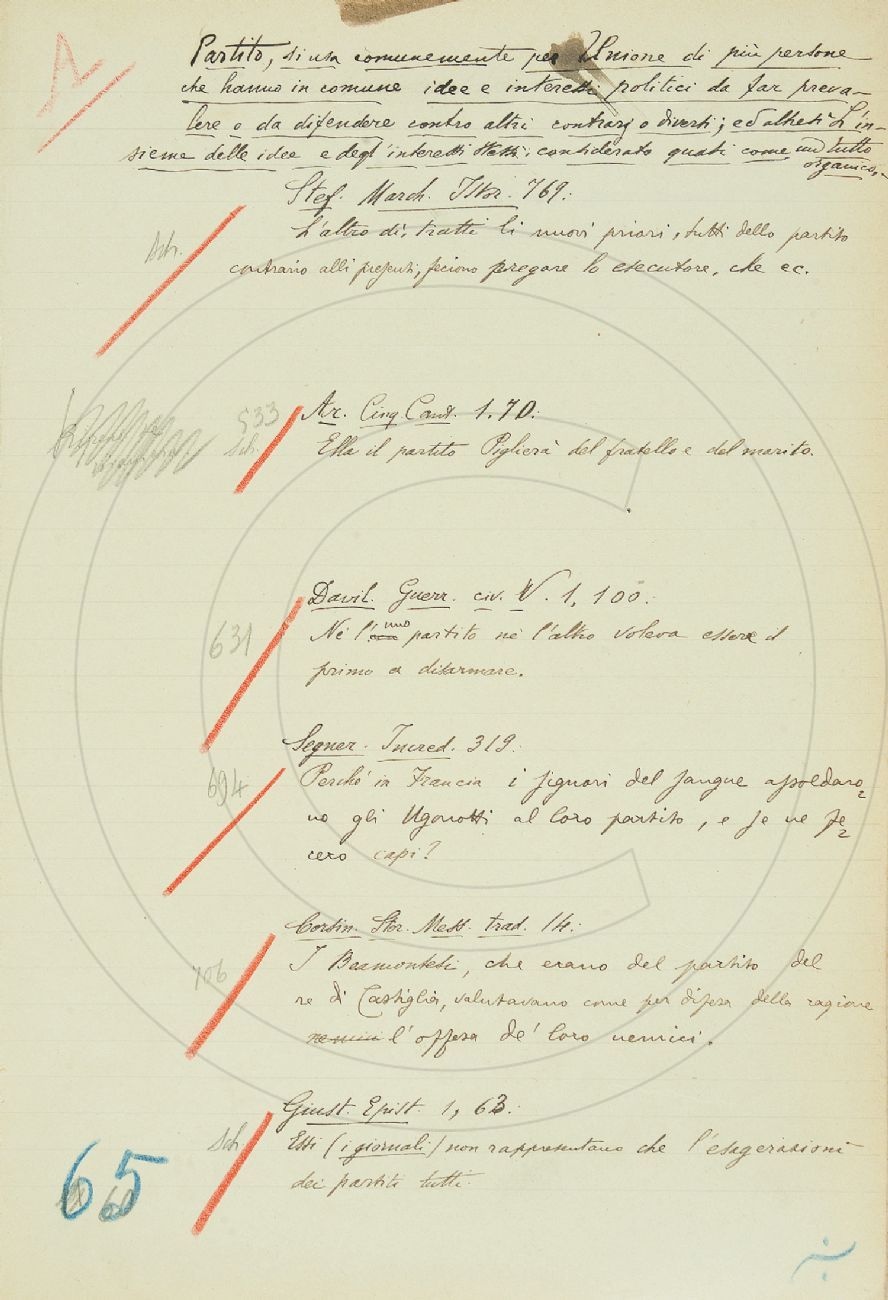 A
Partito, si usa comunemente per Unione di più persone
che hanno in comune idee e interessi politici da far preva-
lere o da difendere contro altri contrarj o diversi; ed altresì L'in-
sieme delle idee e degl'interessi stessi, considerato quasi come un tutto
organico. -
Stef. March. Istor. 769:
Sch.
L'altro dì, tratti li nuovi priori, tutti dello partito
contrario alli presenti, feciono pregare lo esecutore, che ec.
533
Ar. Cinq. Cant. 1.70:
Sch.
Ella il partito Piglierà del fratello e del marito.
Davil. Guerr. civ. V. 1, 100:
631
Nè l'uno partito nè l'altro voleva essere il
primo a disarmare.
Segner. Incred. 319:
694
Perché in Francia i signori del sangue assoldaro=
no gli Ugonotti al loro partito, e se ne fe=
cero capi?
Corsin. Stor. Mess. trad. 14:
706
I Beamontesi, che erano del partito del
re di Castiglia, valutavano come per difesa della ragione
l'offesa de' loro nemici.
Giust. Epist. 1, 63:
Sch.
Essi (i giornali) non rappresentano che l'esagerazioni
dei partiti tutti.
65
60